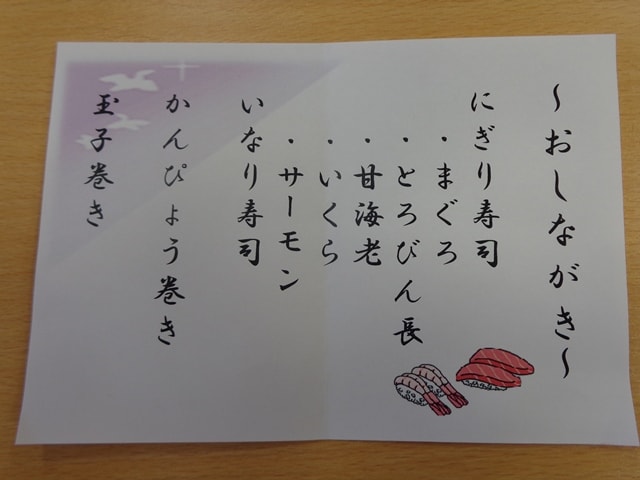 ～おしながき～
にぎり寿司
・まぐろ
・とろびん長
・甘海老
・いくら
・サーモン
いなり寿司
かんぴょう巻き
玉子巻き